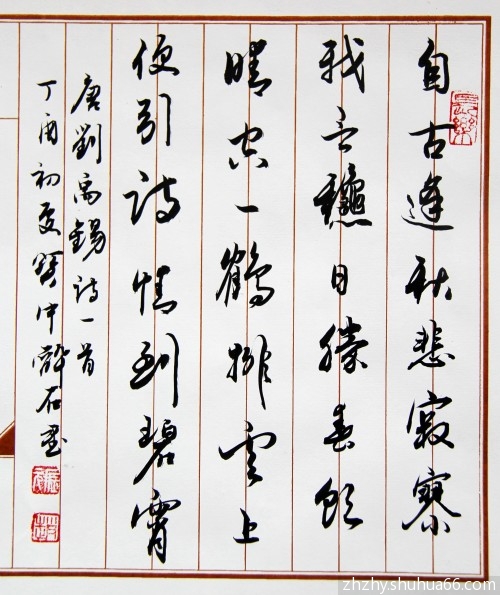 自古逢秋悲寂寥
我言龝日勝春朝
晴空一鶴排雲上
便引詩情到碧霄
唐劉禹錫詩一首
丁酉初夏寶中石書
長樂
zhzhy.shuhua66.com